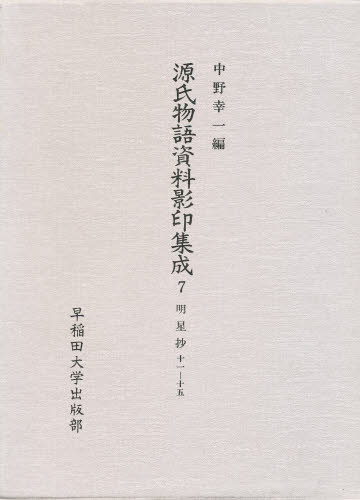 中野幸一編
源氏物語資料影印集成 7 明星抄 十一―十五
早稲田大学出版部